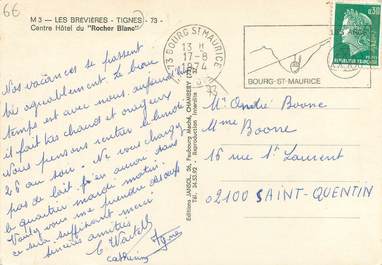 66
M 3 - LES BREVIERES - TIGNES - 73 -
Centre Hôtel du "Rocher Blanc"
Nos vacances se passent
très agréablement. Le beau
temps est avec nous. aujourd'hui
il fait bas chaud et orageux
Nous pensons rentrer le lundi
26 au soir. Ne vous chargez
pas de lait j'en aurai dans
le quartier mardi matin.
Voulez vous me prendre
ce sera suffisant merci
sincères amitiés
Catherine
Editions JANSOL, 26, Faubourg Maché, CHAMBERY (73)
Tél. 34.53.92 - Reproduction interdite
73 BOURG ST MAURICE
17-8
1974
BOURG-ST-MAURICE
0,30
REPUBLIQUE FRANCAISE
Mr André Boone
Mme Boone
16 rue St Laurent
02100 SAINT-QUENTIN